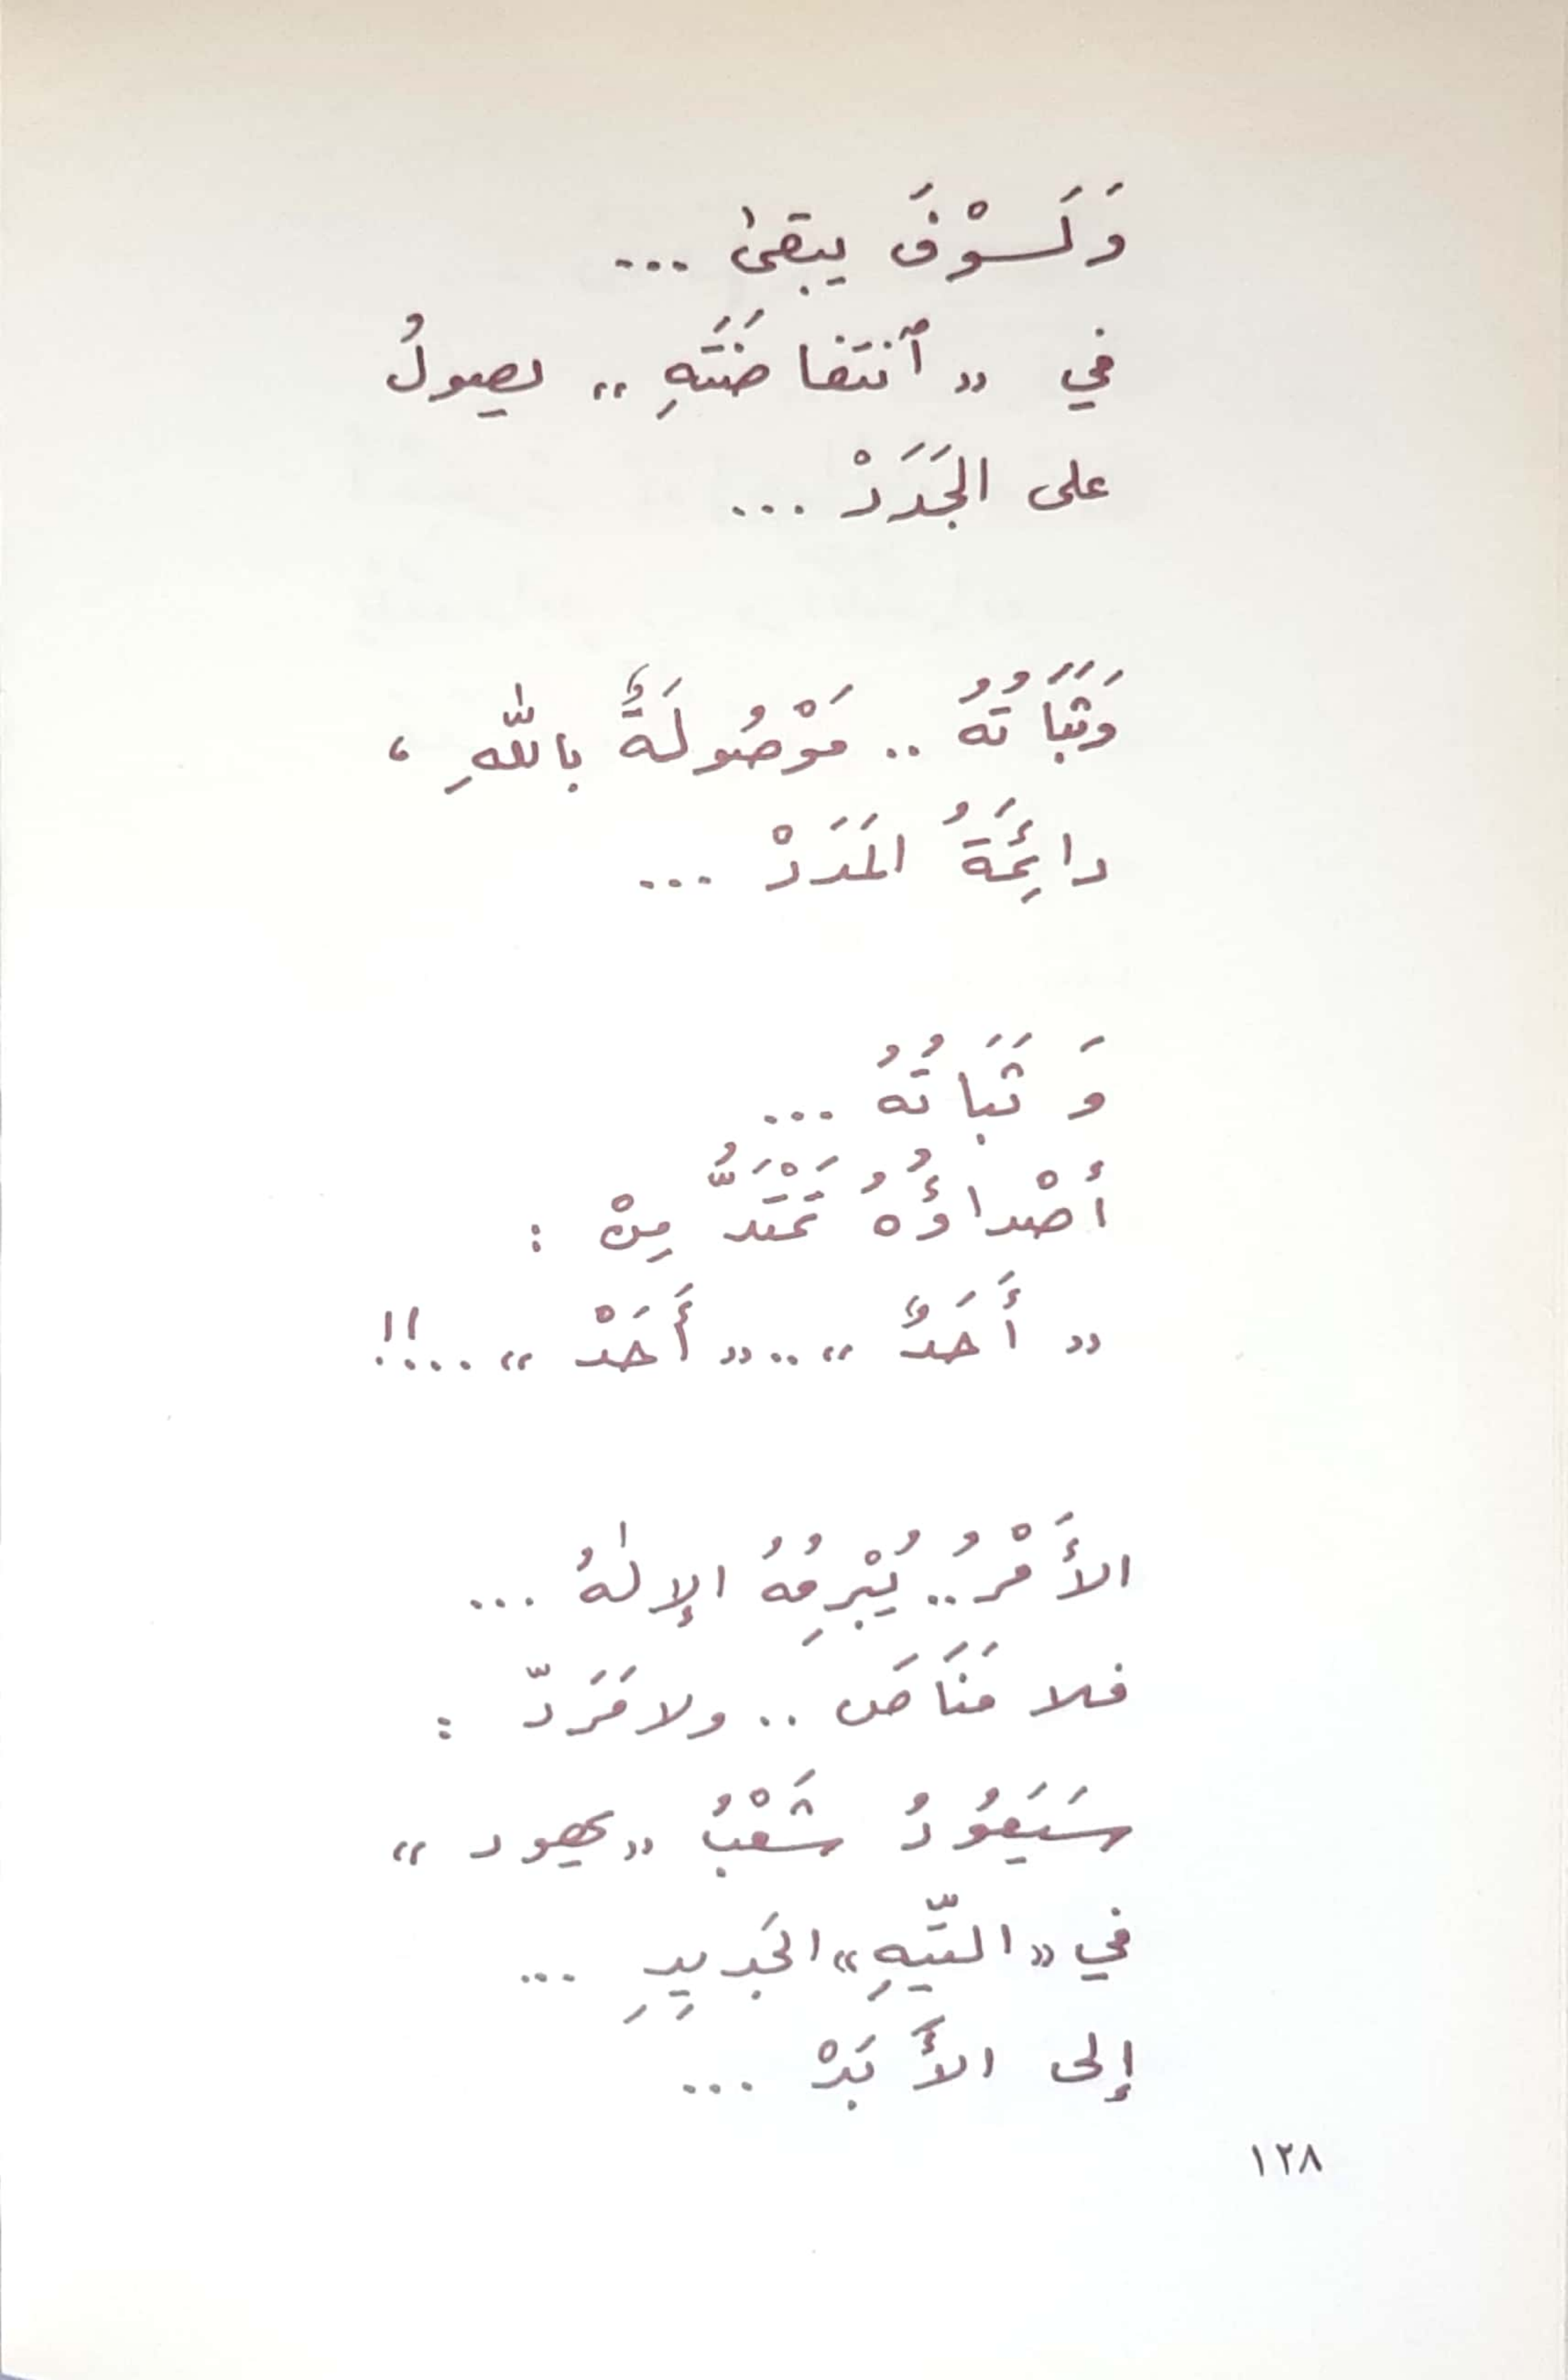 وَلَسوْفَ يبقىٰ ...
في « ٱنتَفاضَتَهِ » يصولُ
على الجَدَدْ ...
وَثَبَاتُهُ .. مَوْصُولَةٌ باللّٰهِ ،
دائِمَةُ المَدَدْ ...
وَ ثَبَاتُهُ ...
أصْداؤُهُ تَمْتَدُّ مِنْ :
« أَحَدٌ » .. « أَحَدْ » ...!!
الأَمْرُ .. يُبْرِمُهُ الإلٰهُ ...
فلا مَنَاصَ .. ولا مَرَدّ :
سَيَعُوُدُ شَعْبُ « يهود »
في « التّيهِ » الجَديِدِ ...
إلى الأَبَدْ ...
١٢٨